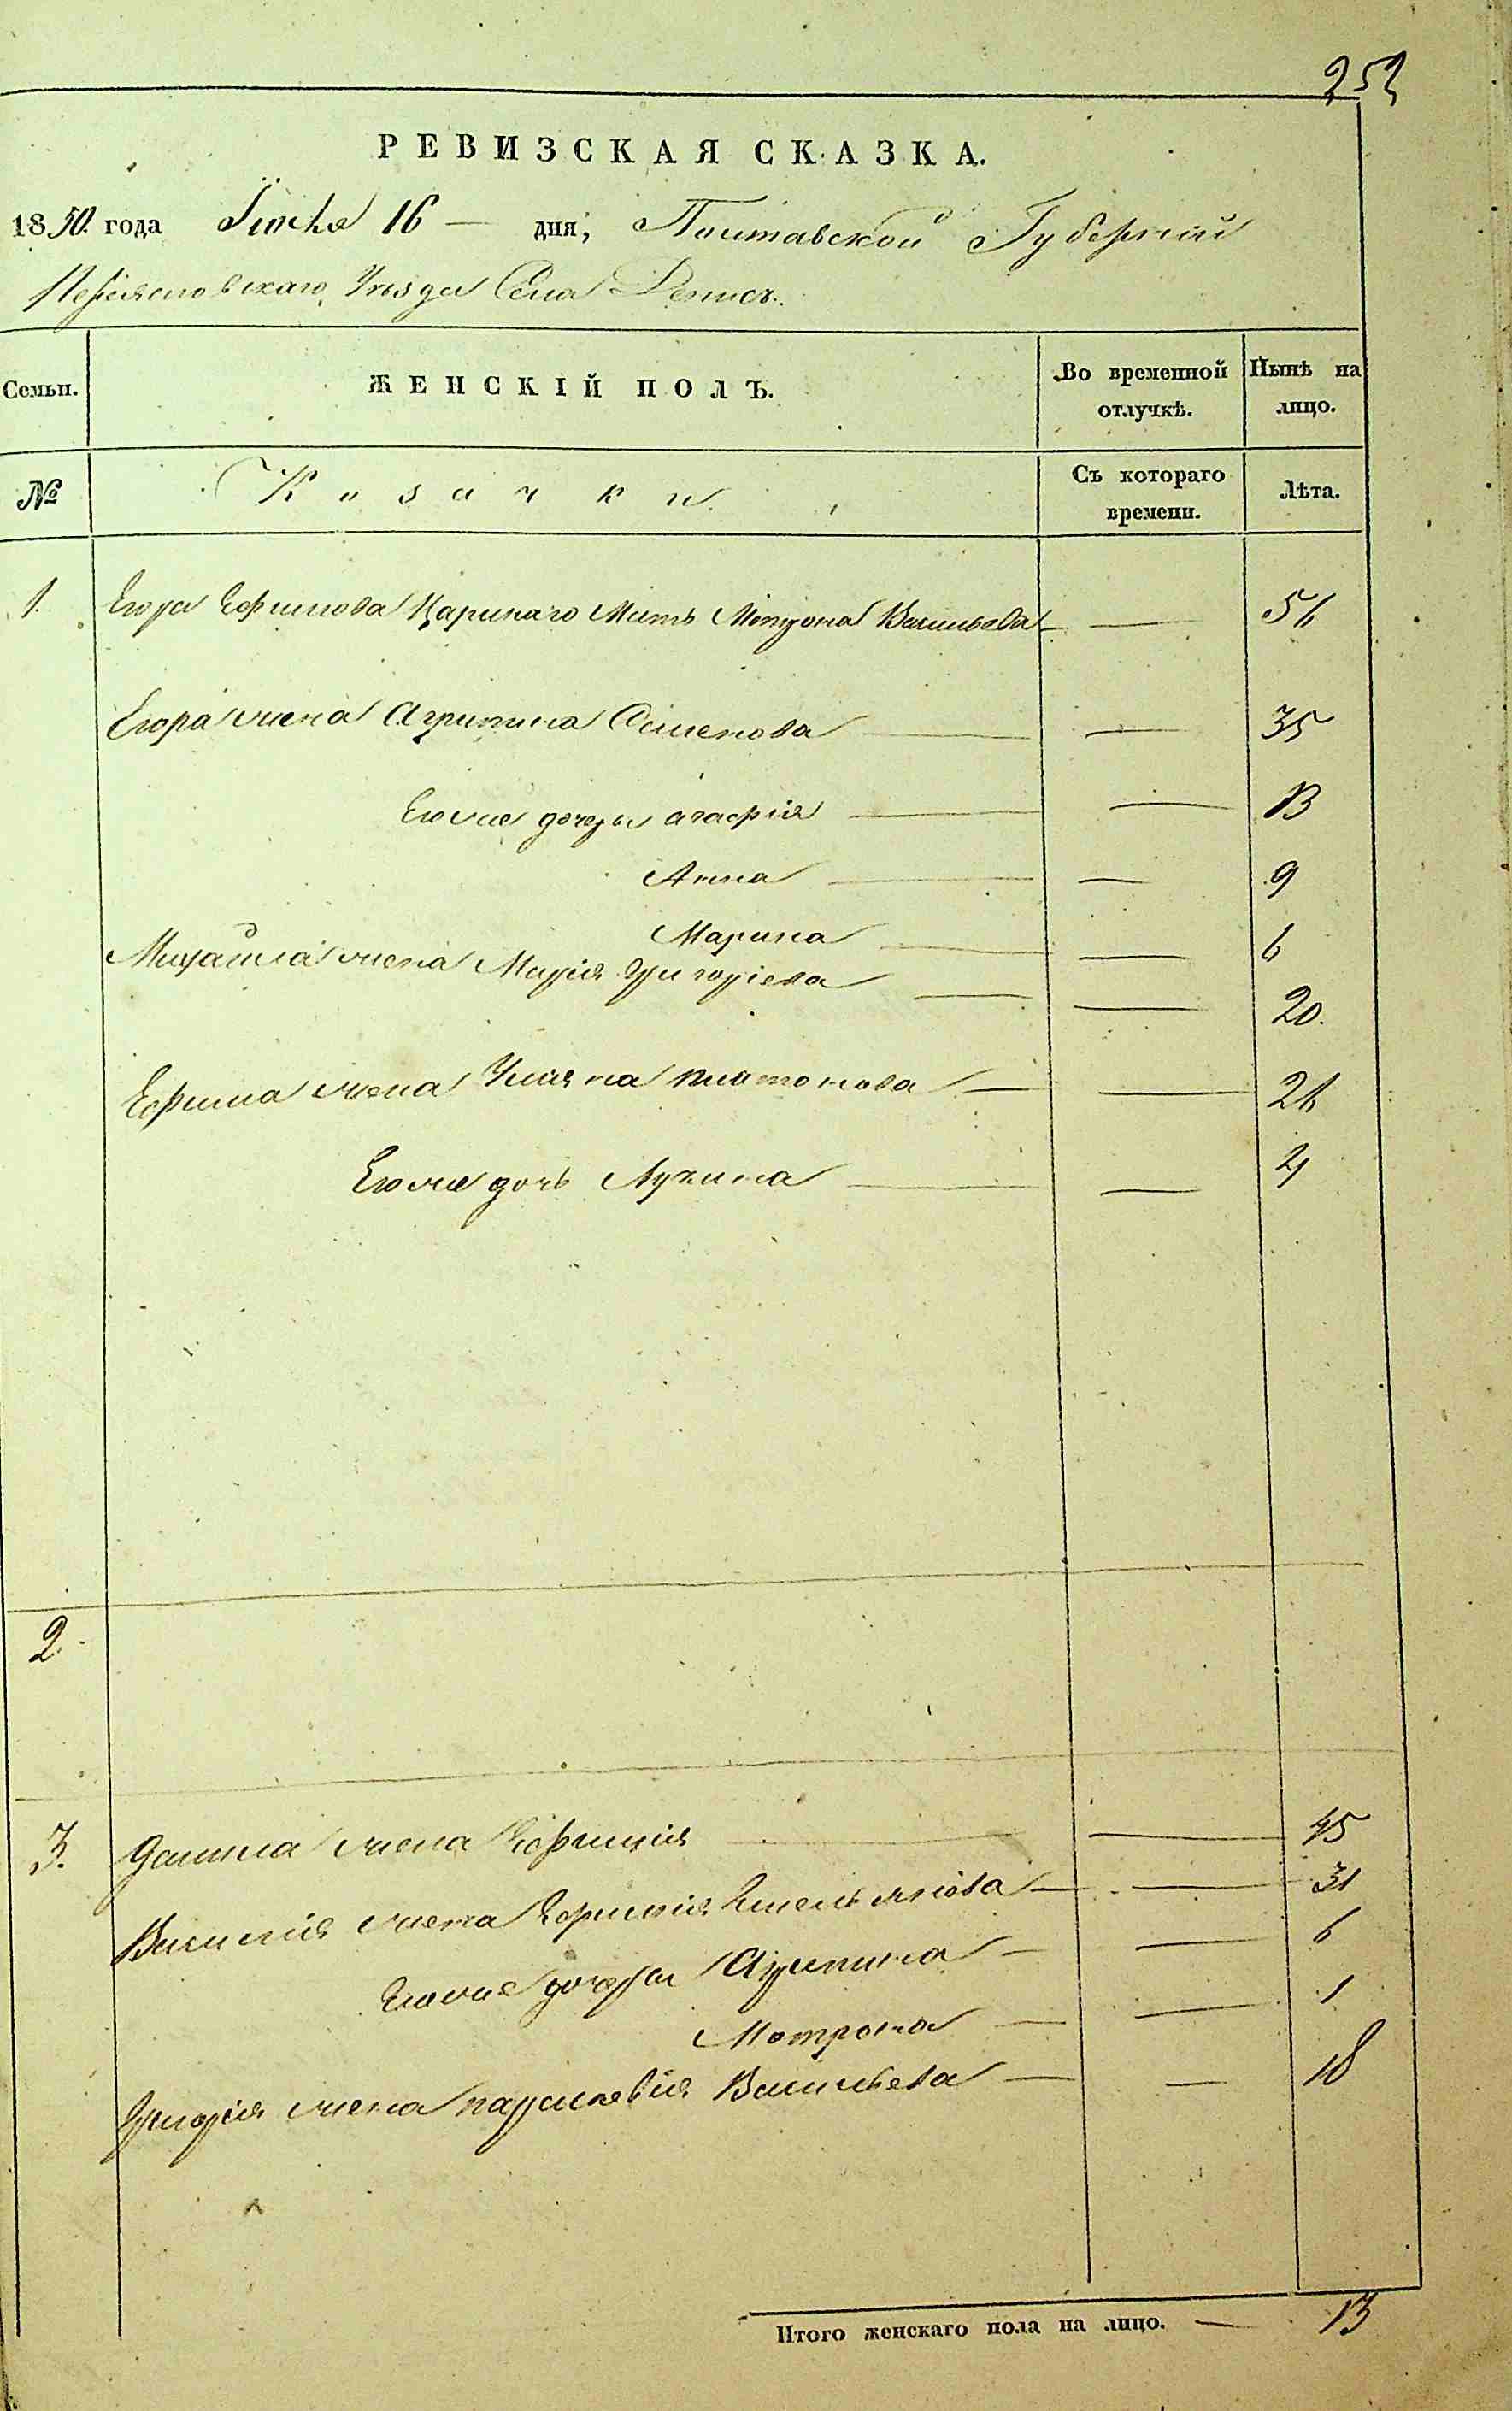 252
РЕВИЗСКАЯ СКАЗКА.
1850. года Июня 16 — дня, Полтавской Губернии
Переясловскаго Уезда Села Денисъ.
Семьи. ЖЕНСКІЙ ПОЛЪ. Во временной отлучкѣ. Нынѣ на лицо.
№ Козачки. Съ котораго времени. Лѣта.
1. Егора Ефимова Цариннаго Мать Мотрона Васильева — — 56
Егора жена Агрипина Семенова — — 35
Егоже дочери агафія — — 13
Анна — — 9
Марина — — 6
Михайла жена Марія Григоріева — — 20.
Ефима жена Уліяна Платонова — — 26
Егоже дочь Лукина — — 4
2
3. Данила жена Ефимія — — 45
Василія жена Ефимія Емельянова — — 31
Егоже дочери Агрипина — — 6
Мотрона — — 1
Григорія жена параскевія Васильева — — 18
Итого женскаго пола на лицо. — 13